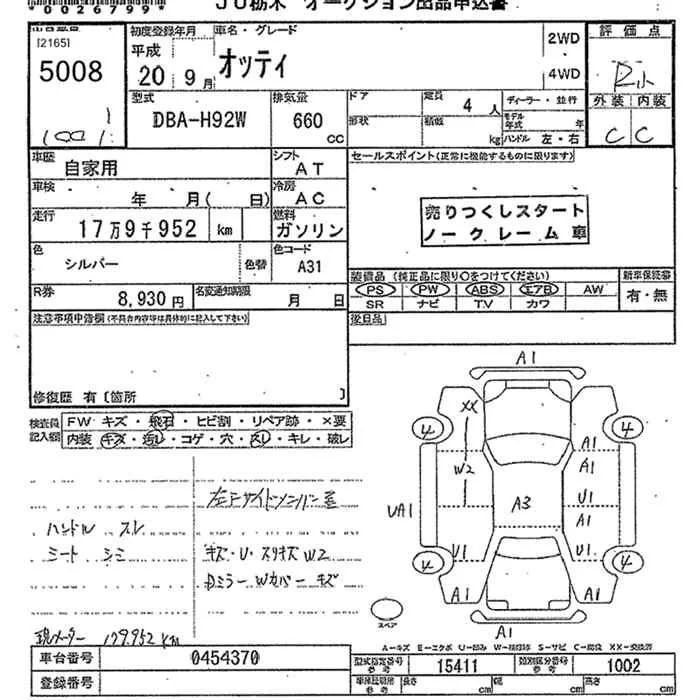 *0026799*
JU栃木 オークション出品申込書
[2165]
5008
初度登録年月
平成
20 9月
車名・グレード
オッティ
2WD
4WD
評価点
R
外装 内装
C C
型式
DBA-H92W
排気量
660
CC
ドア
形状
定員 4 人
積載 kg
ディーラー・並行
モデル年式 年
ハンドル 左・右
車歴
自家用
シフト
AT
セールスポイント(正常に機能するものに限ります)
車検
年 月( 日)
冷房
AC
売りつくしスタート
ノークレーム車
走行
17万9千952 km
燃料
ガソリン
色
シルバー
色替
色コード
A31
装備品 (純正品に限り○をつけてください)
新車保証書
PS PW ABS エアB AW
有・無
SR ナビ T.V カワ
R券
8,930円
名変通知期限
月 日
後日品
注意事項申告欄(不具合内容等は具体的に記入して下さい)
修復歴 有 [箇所 ]
検査員記入欄
FW キズ・飛石・ヒビ割・リペア跡・×要
内装 キズ・汚レ・コゲ・穴・スレ・キレ・破レ
ハンドル スレ
シート シミ
キズ・U・スリキズ W2
Dミラー Wカバー キズ
現メーター 179.952 km
A1
XX
4
4
A1
W2
A1
UA1
A3
U1
A1
U1
U1
4
4
A1
A1
A1
スペア
A-キズ E-エクボ U-凹み W-補修跡 S-サビ C-腐蝕 XX-交換済
車台番号
0454370
型式指定番号
参考
15411
類別区分番号
参考
1002
登録番号
車庫証明用
参考
長さ cm
幅 cm
高さ cm